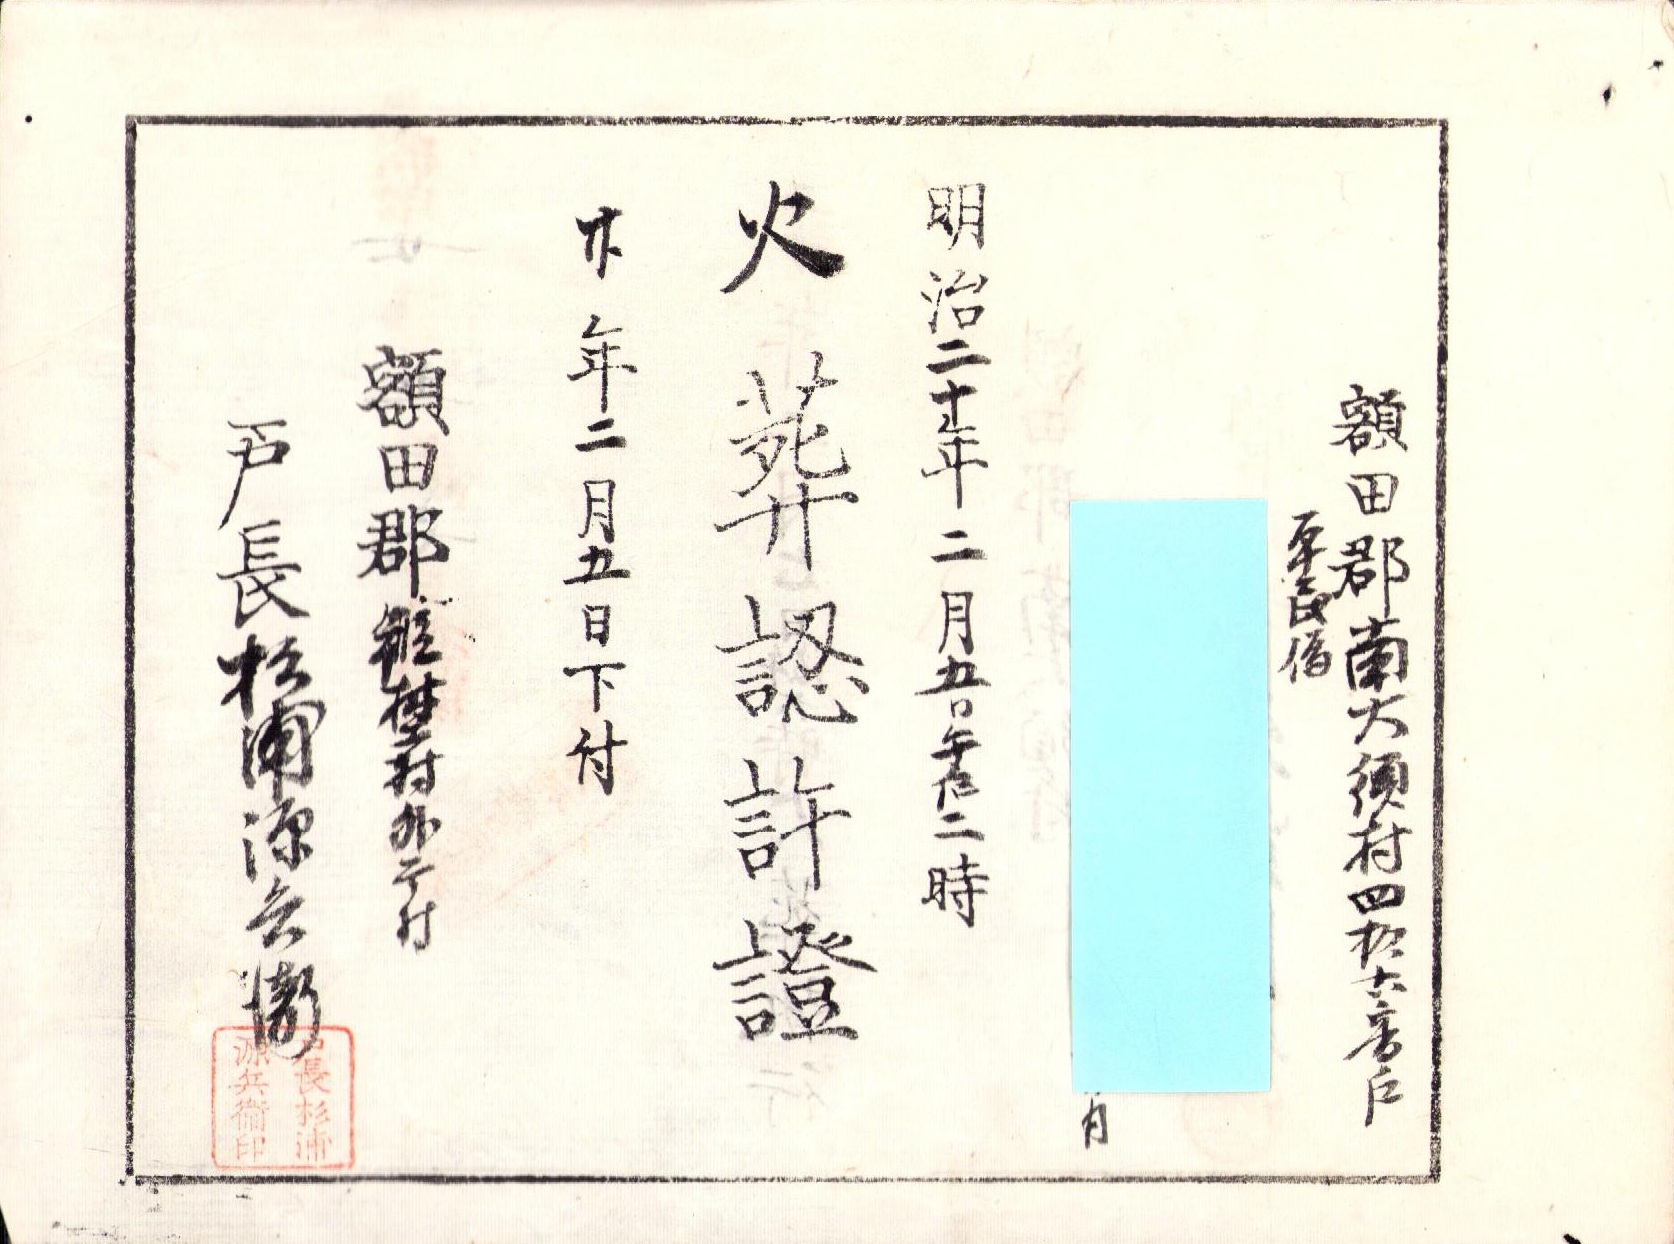 額田郡南大須村四拾六番戸
平民
月
明治二十年二月五日午后二時
火葬認許證
廿年二月五日下付
額田郡
戸長杉浦源兵衛
戸長杉浦
源兵衛印